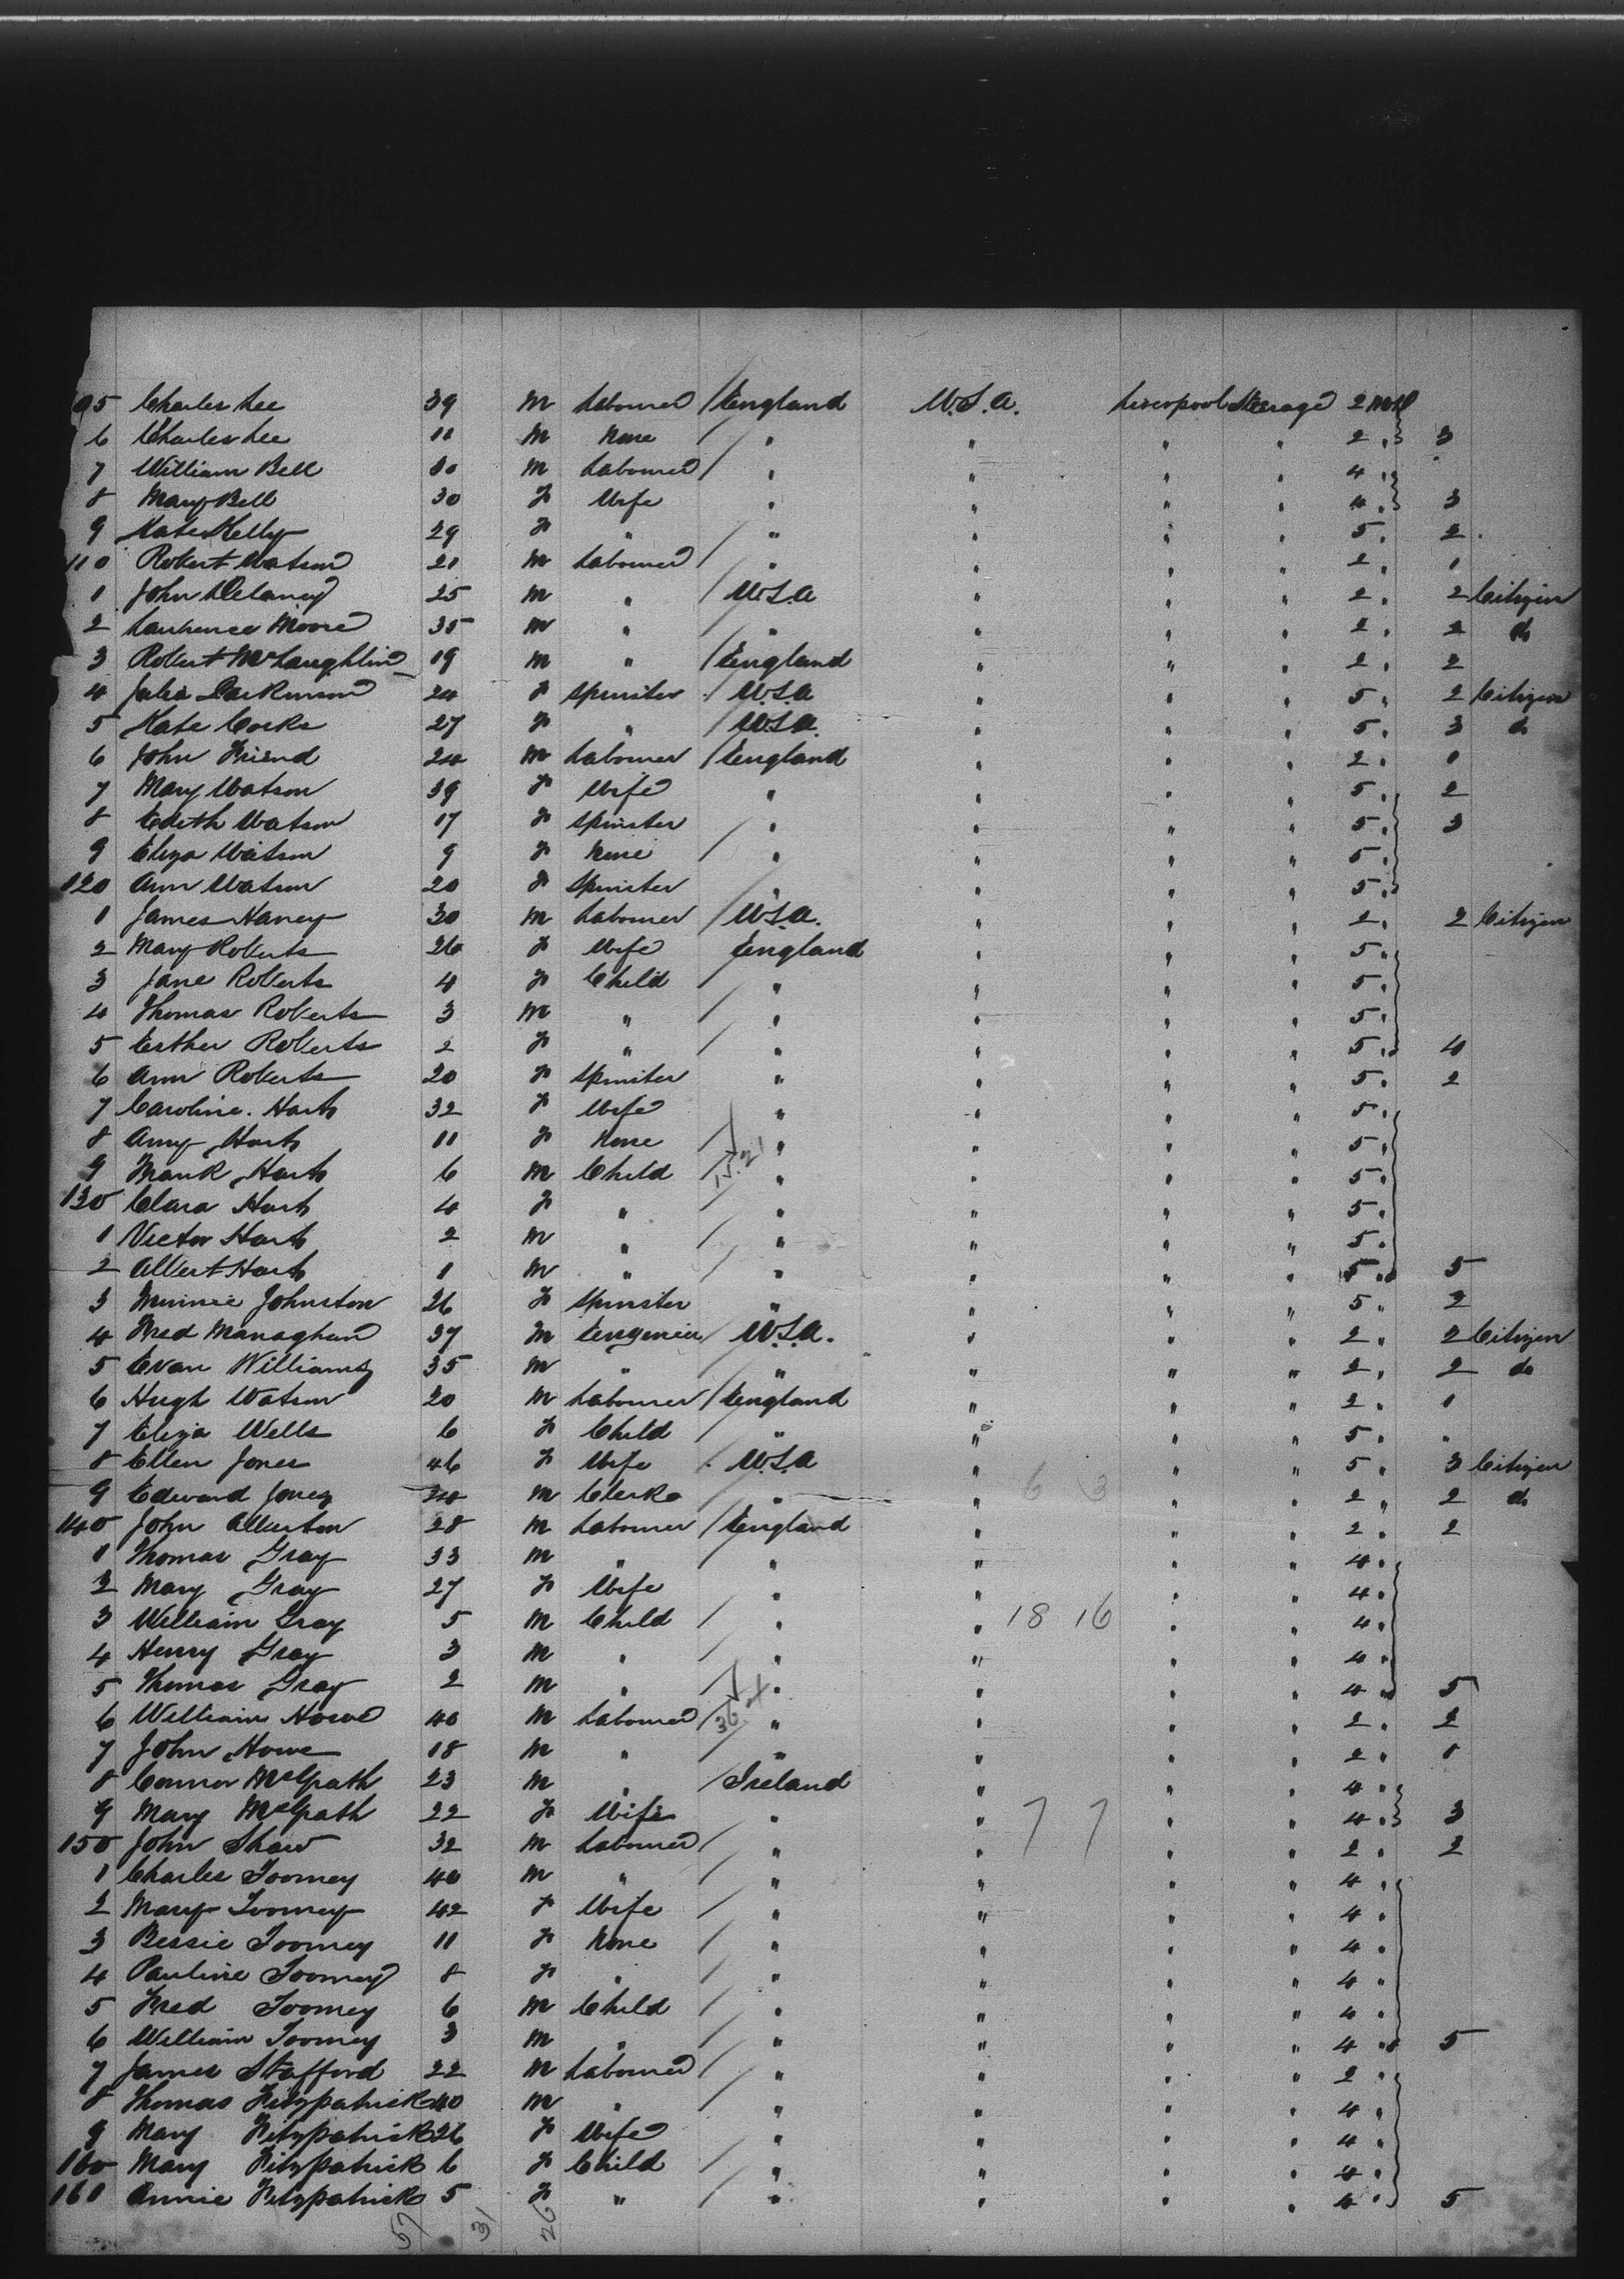 105 Charles Lee 39 M Labourer / England U.S.A. Liverpool Steerage 2
6 Charles Lee 11 M None / " " " " 2 " 3
7 William Bell 30 M Labourer / " " " " 4 "
8 Mary Bell 30 F Wife " " " " 4 " 3
9 Kate Kelly 29 F " / " " " " 5 " 2
110 Robert Watson 21 M Labourer / " " " " 2 " 1
1 John Delaney 25 M " / U.S.A " " " 2 " 2 Citizen
2 Laurence Moore 35 M " / " " " " 2 " 2 do
3 Robert McLaughlin 19 M " / England " " " 2 " 2
4 Julia Darkinson 24 F Spinster U.S.A " " " 5 " 2 Citizen
5 Kate Cocks 27 F " / U.S.A. " " " 5 " 3 do
6 John Friend 24 M Labourer / England " " " 2 " 1
7 Mary Watson 39 F Wife " " " " 5 " 2
8 Edith Watson 17 F Spinster / " " " " 5 " 3
9 Eliza Watson 9 F None / " " " " 5 "
120 Ann Watson 20 F Spinster " " " " 5 "
1 James Haney 30 M Labourer / U.S.A. " " " 2 " 2 Citizen
2 Mary Roberts 26 F Wife England " " " 5 "
3 Jane Roberts 4 F Child / " " " " 5 "
4 Thomas Roberts 3 M " / " " " " 5 "
5 Esther Roberts 2 F " / " " " " 5 " 4
6 Ann Roberts 20 F Spinster " " " " 5 " 2
7 Caroline. Hart 32 F Wife " " " " 5 "
8 Amy Hart 11 F None / " " " " 5 "
9 Frank Hart 6 M Child / " " " " 5 "
130 Clara Hart 4 F " / " " " " 5 "
1 Victor Hart 2 M " / " " " " 5 "
2 Albert Hart 1 M " / " " " " 5 " 5
3 Minnie Johnston 26 F Spinster " " " " 5 " 2
4 Fred Managhan 37 M Engenier / U.S.A. " " " 2 " 2 Citizen
5 Evan Williams 35 M " / " " " " 2 " 2 do
6 Hugh Watson 20 M Labourer / England " " " 2 " 1
7 Eliza Wells 6 F Child / " " " " 5 " "
8 Ellen Jones 46 F Wife U.S.A " " " 5 " 3 Citizen
9 Edward Jones 24 M Clerk " " 6 3 " " 2 " 2 do
140 John Alberton 28 M Labourer / England " " " 2 " 2
1 Thomas Gray 33 M " / " " " " 4 "
2 Mary Gray 27 F Wife " " " " 4 "
3 William Gray 5 M Child / " " 18 16 " " 4 "
4 Henry Gray 3 M " / " " " " 4 "
5 Thomas Gray 2 M " / " " " " 4 " 5
6 William Howe 40 M Labourer / " " " " 2 " 2
7 John Howe 18 M " / " " " " 2 " 1
8 Connor McGrath 23 M " / Ireland " " " 4 "
9 Mary McGrath 22 F Wife " " 7 7 " " 4 " 3
150 John Shaw 32 M Labourer / " " " " 2 " 2
1 Charles Toomey 40 M " / " " " " 4 "
2 Mary Toomey 42 F Wife / " " " " 4 "
3 Bessie Toomey 11 F None / " " " " 4 "
4 Pauline Toomey 8 F " / " " " " 4 "
5 Fred Toomey 6 M Child / " " " " 4 "
6 William Toomey 3 M " / " " " " 4 " 5
7 James Stafford 22 M Labourer / " " " " 2 "
8 Thomas Fitzpatrick 40 M " / " " " " 4 "
9 Mary Fitzpatrick 26 F Wife " " " " 4 "
160 Mary Fitzpatrick 6 F Child / " " " " 4 "
161 Annie Fitzpatrick 5 F " / " " " " 4 " 5
57 31 26